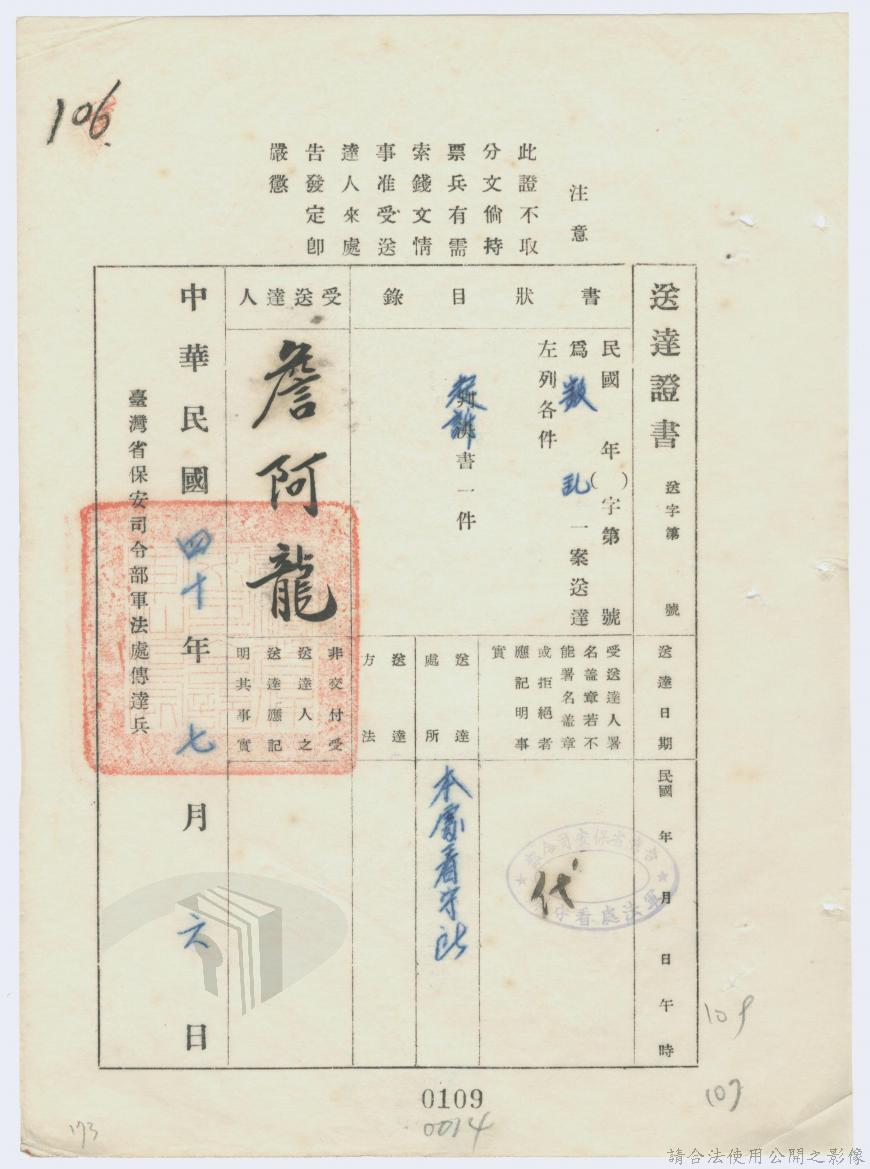 106
注意
此證不取
分文倘持
票兵有需
索錢文情
事准受送
達人來處
告發定卽
嚴懲
送達證書
送字第　號
書狀目錄
民國　年（　）字第　號
爲叛亂一案送達
左列各件
判決書一件
受送達人
詹阿龍
送達日期
民國　年　月　日午　時
受送達人署
名盖章若不
能署名盖章
或拒絕者
應記明事
實
代
台灣省保安司令部
軍法處看守所
送達
處所
本處看守所
送達
方法
非交付受
送達人之
送達應記
明其事實
中華民國四十年七月六日
臺灣省保安司令部軍法處傳達兵
0109
0014
109
107
173
請合法使用公開之影像